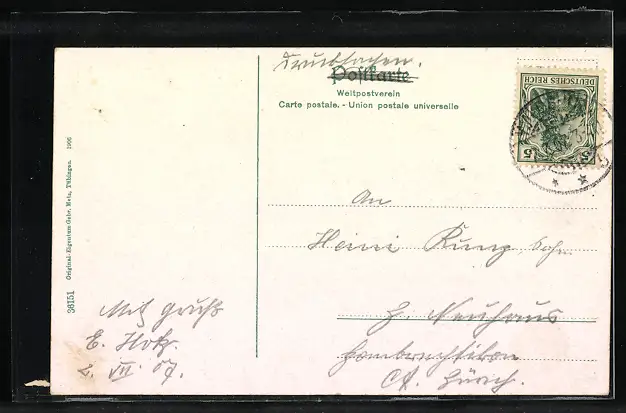 Drucksachen.
Postkarte
Weltpostverein
Carte postale. - Union postale universelle
DEUTSCHES REICH
5 5
An
Heini Kunz, Sohn
z. Neuhaus
Hombrechtikon
Ct. Zürich.
Mit Gruß
E. Hotz
2. VII. 07.
36151 Original-Eigentum Gebr. Metz, Tübingen. 1906